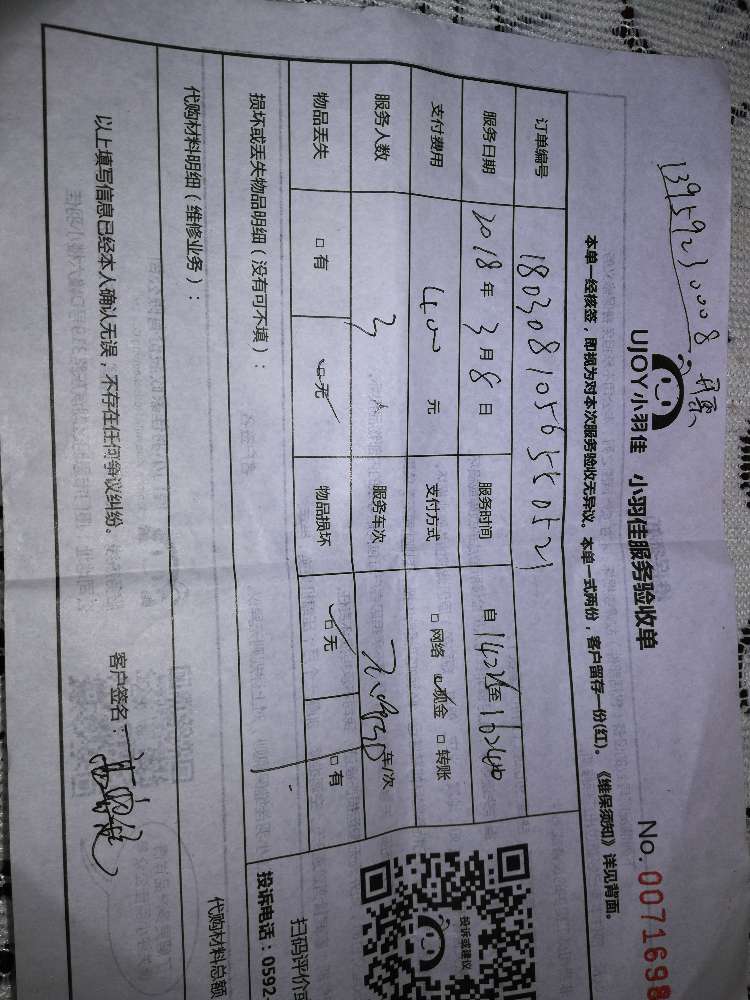 13959230008 开票
UJOY小羽佳 小羽佳服务验收单 No. 0071698
本单一经核签，即视为对本次服务验收无异议。本单一式两份，客户留存一份(红)。《维保须知》详见背面。
订单编号 1803081056550521
服务日期 2018年3月8日 服务时间 自 至
支付费用 元 支付方式 □网络 □现金 □转账
服务人数 3 服务车次 车/次
物品丢失 □有 □无 物品损坏 □无 □有
损坏或丢失物品明细（没有可不填）：
代购材料明细（维修业务）：
代购材料总额
以上填写信息已经本人确认无误，不存在任何争议纠纷。 客户签名：
投诉或建议
扫码评价
投诉电话：0592